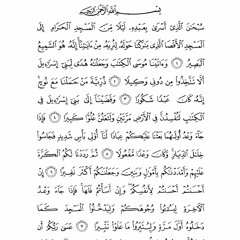 بِسْمِ ٱللَّهِ ٱلرَّحْمَٰنِ ٱلرَّحِيمِ
سُبْحَٰنَ ٱلَّذِىٓ أَسْرَىٰ بِعَبْدِهِۦ لَيْلًا مِّنَ ٱلْمَسْجِدِ ٱلْحَرَامِ إِلَى
ٱلْمَسْجِدِ ٱلْأَقْصَا ٱلَّذِى بَٰرَكْنَا حَوْلَهُۥ لِنُرِيَهُۥ مِنْ ءَايَٰتِنَآ إِنَّهُۥ هُوَ ٱلسَّمِيعُ
ٱلْبَصِيرُ ١ وَءَاتَيْنَا مُوسَى ٱلْكِتَٰبَ وَجَعَلْنَٰهُ هُدًى لِّبَنِىٓ إِسْرَٰٓءِيلَ
أَلَّا تَتَّخِذُوا۟ مِن دُونِى وَكِيلًا ٢ ذُرِّيَّةَ مَنْ حَمَلْنَا مَعَ نُوحٍ
إِنَّهُۥ كَانَ عَبْدًا شَكُورًا ٣ وَقَضَيْنَآ إِلَىٰ بَنِىٓ إِسْرَٰٓءِيلَ فِى
ٱلْكِتَٰبِ لَتُفْسِدُنَّ فِى ٱلْأَرْضِ مَرَّتَيْنِ وَلَتَعْلُنَّ عُلُوًّا كَبِيرًا ٤ فَإِذَا
جَآءَ وَعْدُ أُولَىٰهُمَا بَعَثْنَا عَلَيْكُمْ عِبَادًا لَّنَآ أُو۟لِى بَأْسٍ شَدِيدٍ فَجَاسُوا۟
خِلَٰلَ ٱلدِّيَارِ وَكَانَ وَعْدًا مَّفْعُولًا ٥ ثُمَّ رَدَدْنَا لَكُمُ ٱلْكَرَّةَ
عَلَيْهِمْ وَأَمْدَدْنَٰكُم بِأَمْوَٰلٍ وَبَنِينَ وَجَعَلْنَٰكُمْ أَكْثَرَ نَفِيرًا ٦ إِنْ
أَحْسَنتُمْ أَحْسَنتُمْ لِأَنفُسِكُمْ وَإِنْ أَسَأْتُمْ فَلَهَا فَإِذَا جَآءَ وَعْدُ
ٱلْءَاخِرَةِ لِيَسُۥٓـُٔوا۟ وُجُوهَكُمْ وَلِيَدْخُلُوا۟ ٱلْمَسْجِدَ كَمَا
دَخَلُوهُ أَوَّلَ مَرَّةٍ وَلِيُتَبِّرُوا۟ مَا عَلَوْا۟ تَتْبِيرًا ٧